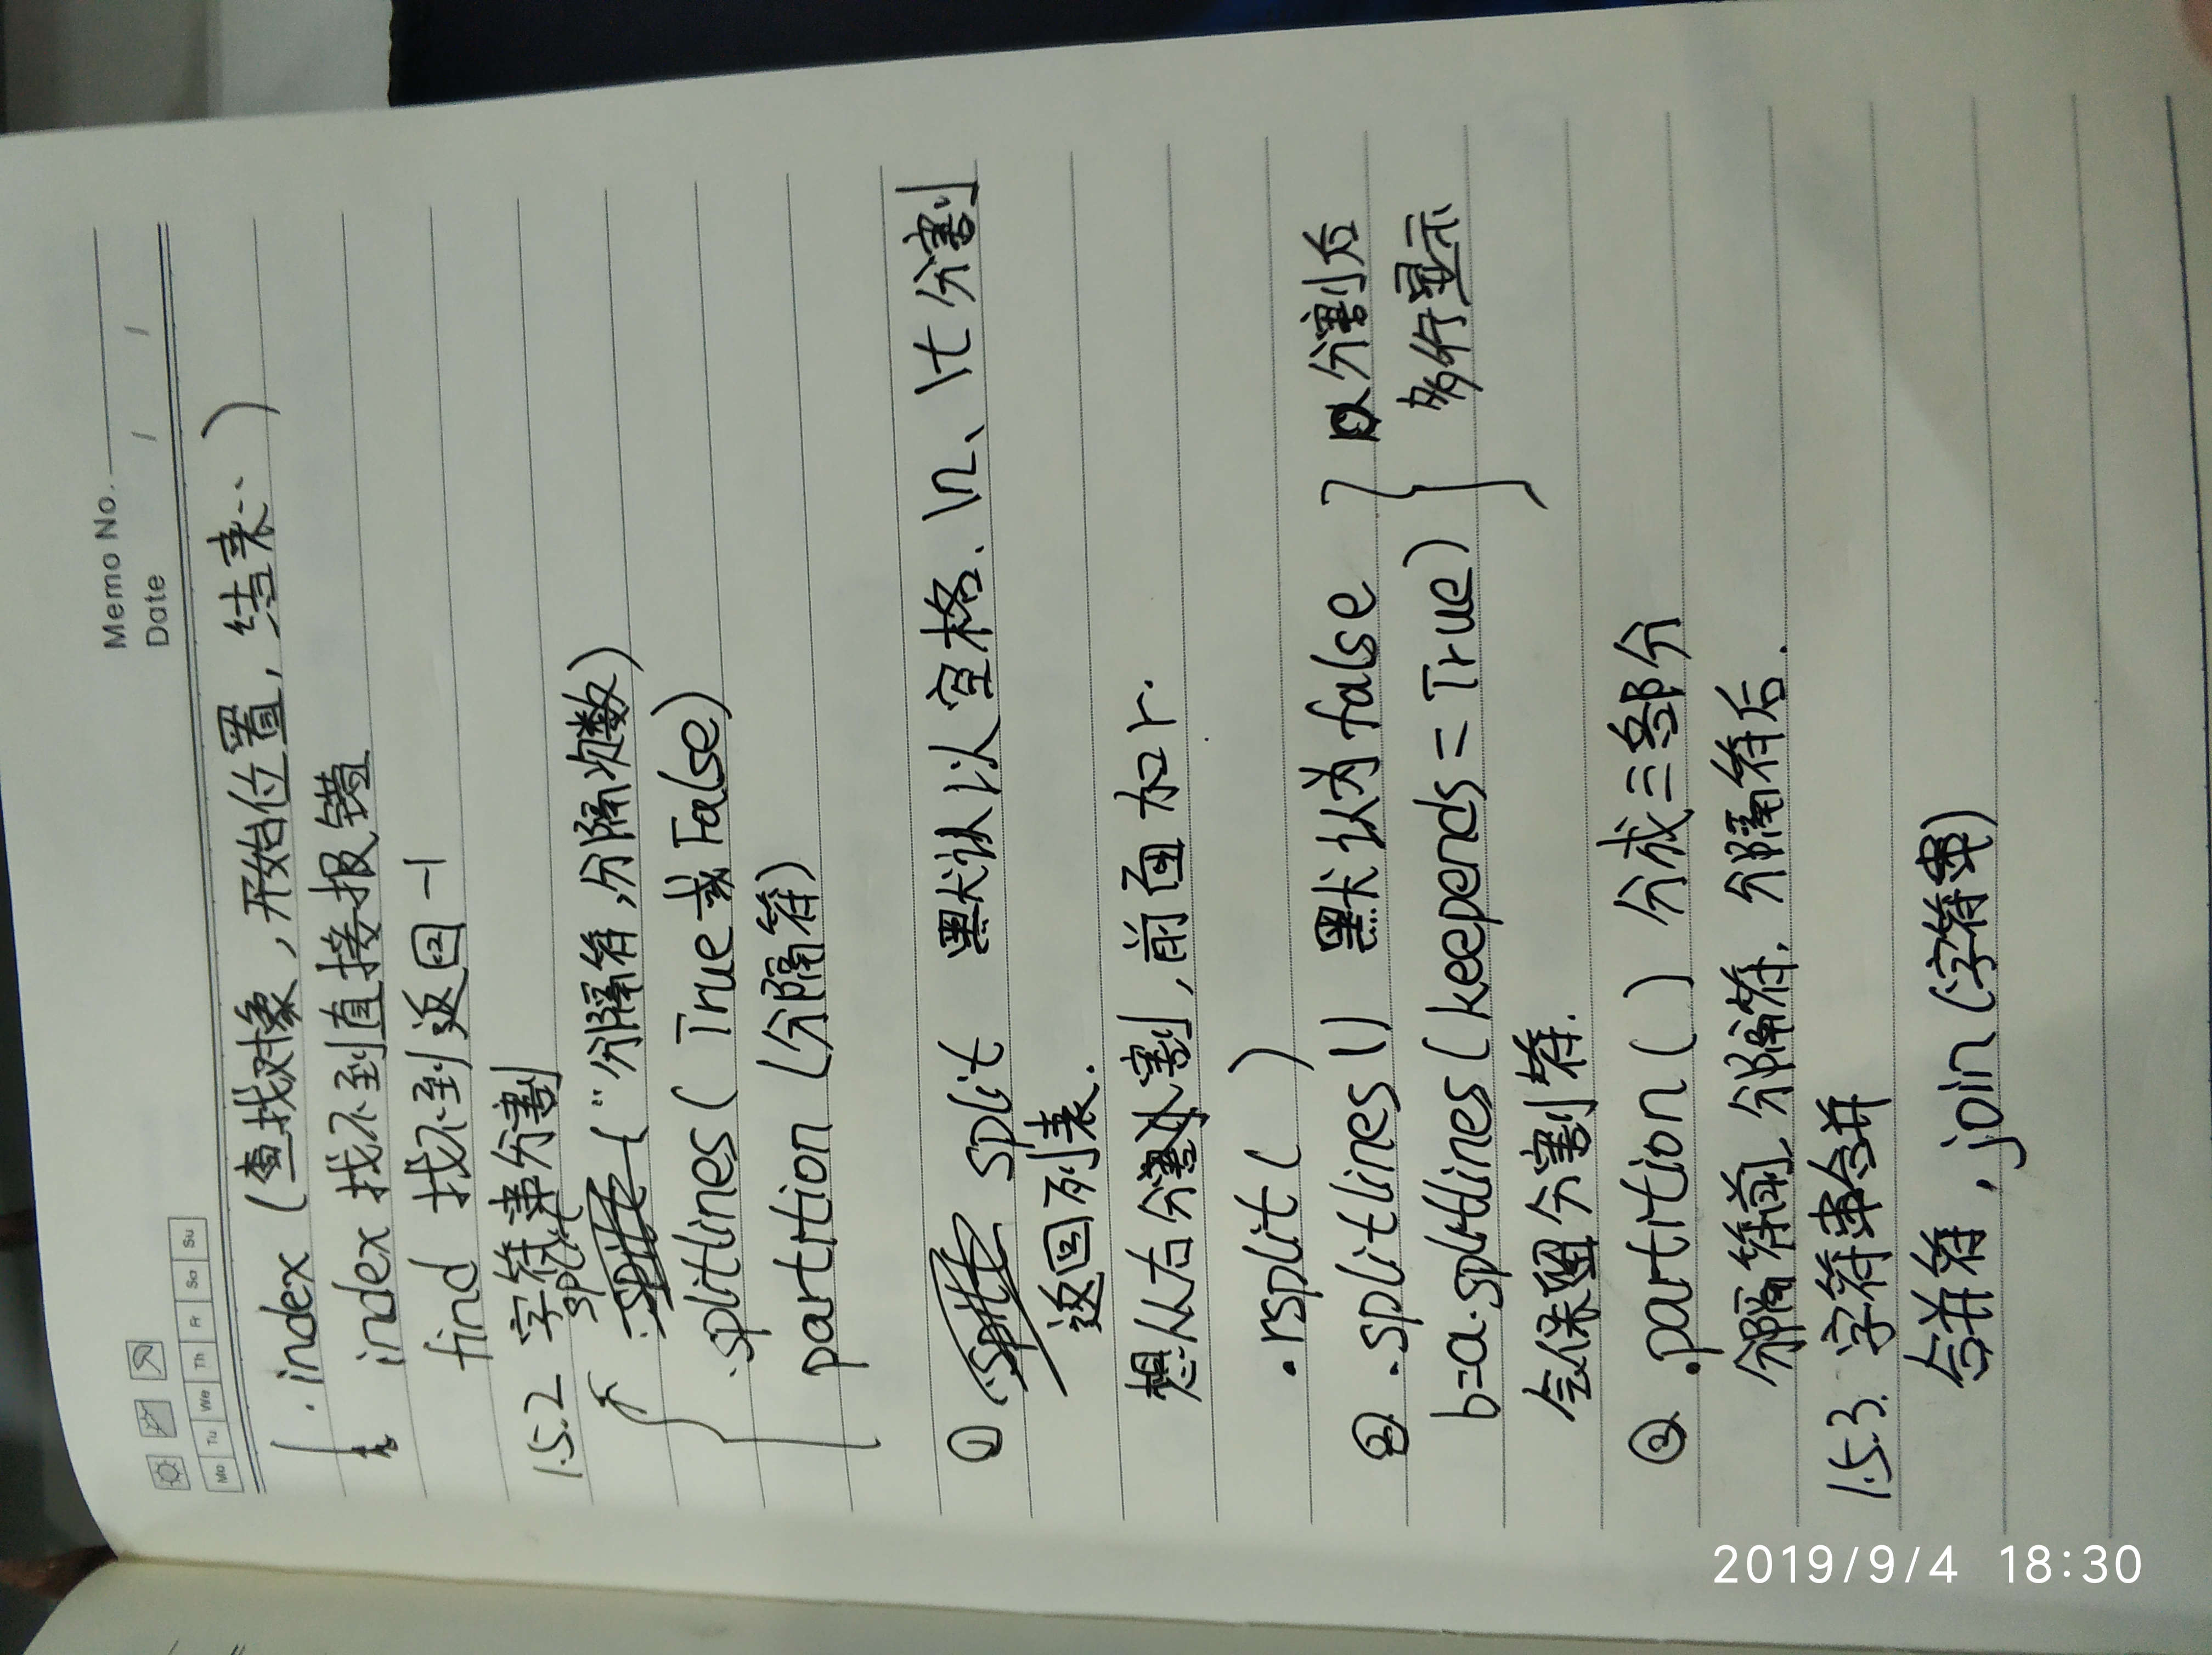 Memo No.
Date / /
Mo Tu We Th Fr Sa Su
.index (查找对象,开始位置,结束..)
index 找不到直接报错
find 找不到返回 -1
1.5.2 字符串分割
split
("分隔符,分隔次数)
.splitlines( True或False)
partition (分隔符)
① split 默认以空格、\n、\t分割
返回列表.
想从右分割,前面加r.
.rsplit( )
② .splitlines() 默认为false
分割后
b=a.splitlines(keepends=True)
多行显示
会保留分割符.
③ .partition() 分成三部分
分隔符前,分隔符,分隔符后.
1.5.3. 字符串合并
合并符.join(字符串)
2019/9/4 18:30